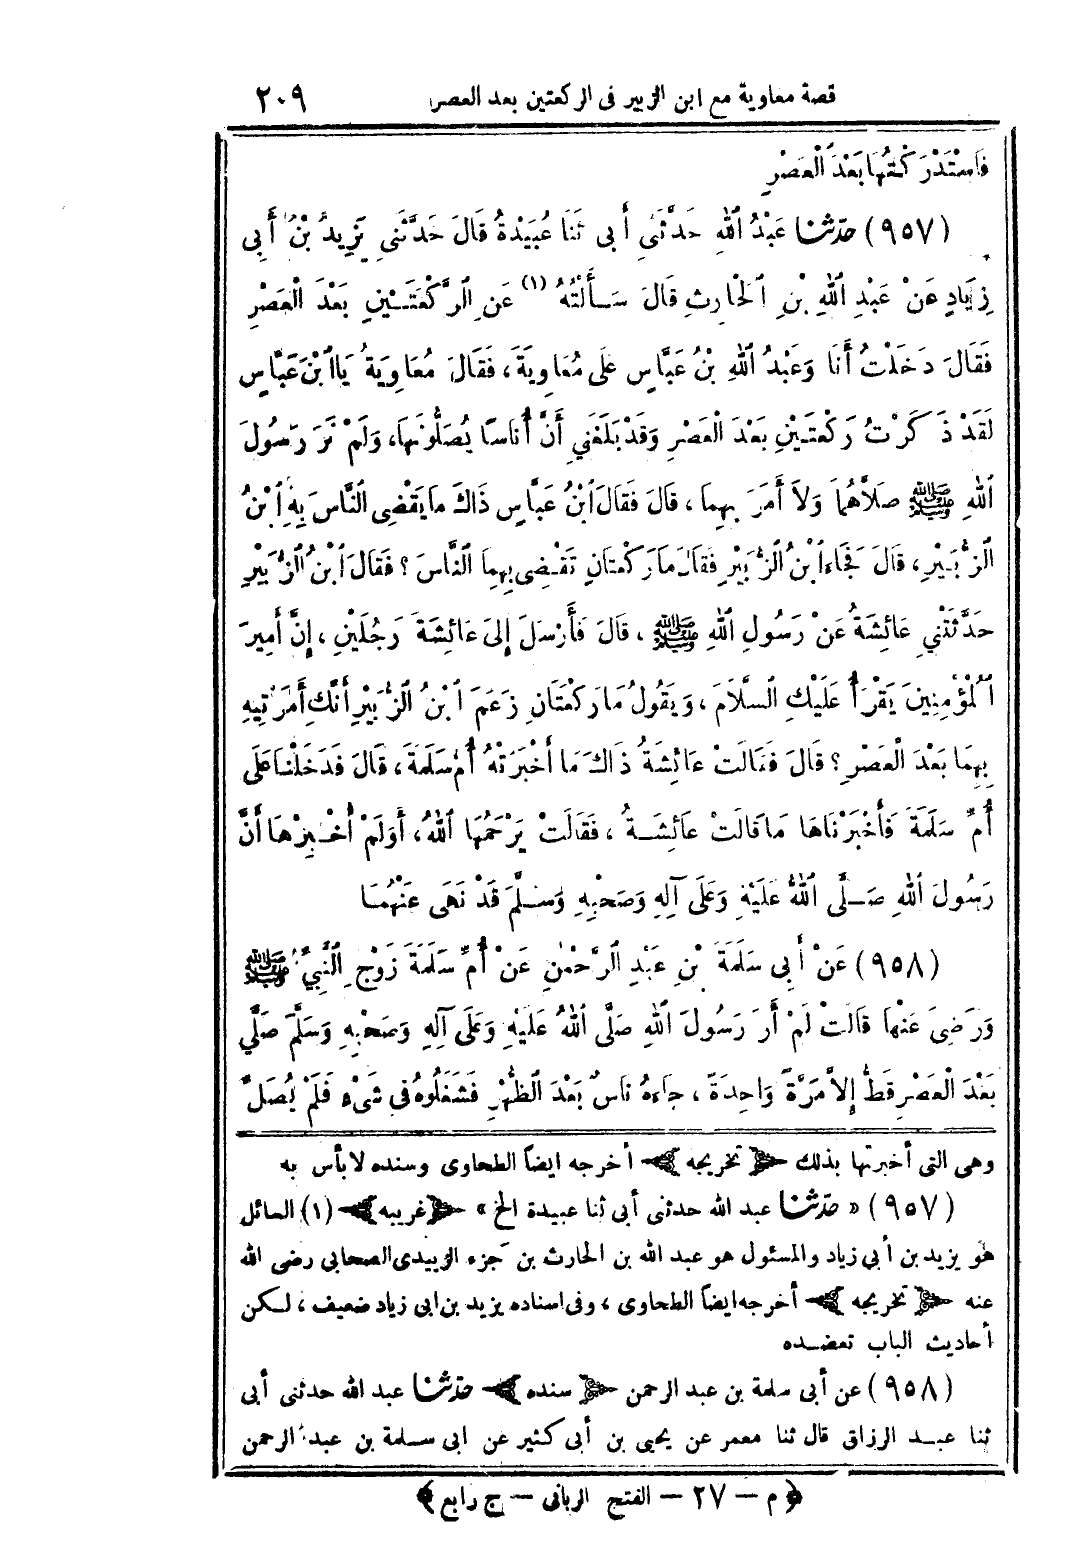 قصة معاوية مع ابن الزبير فى الركعتين بعد العصر ٢٠٩
فَاسْتَدْرَكْتُهَا بَعْدَ الْعَصْرِ
(٩٥٧) حدّثنا عَبْدُ اللهِ حَدَّثَنِى أَبِى ثَنَا عُبَيْدَةُ قَالَ حَدَّثَنِى يَزِيدُ بْنُ أَبِى
زِيَادٍ عَنْ عَبْدِ اللهِ بْنِ الْحَارِثِ قَالَ سَأَلْتُهُ (١) عَنِ الرَّكْعَتَيْنِ بَعْدَ الْعَصْرِ
فَقَالَ دَخَلْتُ أَنَا وَعَبْدُ اللهِ بْنُ عَبَّاسٍ عَلَى مُعَاوِيَةَ، فَقَالَ مُعَاوِيَةُ يَا ابْنَ عَبَّاسٍ
لَقَدْ ذَكَرْتُ رَكْعَتَيْنِ بَعْدَ الْعَصْرِ وَقَدْ بَلَغَنِي أَنَّ أُنَاسًا يُصَلُّونَهَا، وَلَمْ نَرَ رَسُولَ
اللهِ ﷺ صَلَّاهُمَا وَلاَ أَمَرَ بِهِمَا، قَالَ فَقَالَ ابْنُ عَبَّاسٍ ذَاكَ مَا يَقْضِى النَّاسَ بِهِ ابْنُ
الزُّبَيْرِ، قَالَ فَجَاءَ ابْنُ الزُّبَيْرِ فَقَالَ مَا رَكْعَتَانِ تَقْضِى بِهِمَا النَّاسَ؟ فَقَالَ ابْنُ الزُّبَيْرِ
حَدَّثَتْنِي عَائِشَةُ عَنْ رَسُولِ اللهِ ﷺ، قَالَ فَأَرْسَلَ إِلَى عَائِشَةَ رَجُلَيْنِ، إِنَّ أَمِيرَ
الْمُؤْمِنِينَ يَقْرَأُ عَلَيْكِ السَّلاَمَ، وَيَقُولُ مَا رَكْعَتَانِ زَعَمَ ابْنُ الزُّبَيْرِ أَنَّكِ أَمَرْتِيهِ
بِهِمَا بَعْدَ الْعَصْرِ؟ قَالَ فَقَالَتْ عَائِشَةُ ذَاكَ مَا أَخْبَرَتْهُ أُمُّ سَلَمَةَ، قَالَ فَدَخَلْنَا عَلَى
أُمِّ سَلَمَةَ فَأَخْبَرْنَاهَا مَا قَالَتْ عَائِشَةُ، فَقَالَتْ يَرْحَمُهَا اللهُ، أَوَلَمْ أُخْبِرْهَا أَنَّ
رَسُولَ اللهِ صَلَّى اللهُ عَلَيْهِ وَعَلَى آلِهِ وَصَحْبِهِ وَسَلَّمَ قَدْ نَهَى عَنْهُمَا
(٩٥٨) عَنْ أَبِى سَلَمَةَ بْنِ عَبْدِ الرَّحْمٰنِ عَنْ أُمِّ سَلَمَةَ زَوْجِ النَّبِيِّ ﷺ
وَرَضِىَ عَنْهَا قَالَتْ لَمْ أَرَ رَسُولَ اللهِ صَلَّى اللهُ عَلَيْهِ وَعَلَى آلِهِ وَصَحْبِهِ وَسَلَّمَ صَلَّي
بَعْدَ الْعَصْرِ قَطُّ إِلاَّ مَرَّةً وَاحِدَةً، جَاءَهُ نَاسٌ بَعْدَ الظُّهْرِ فَشَغَلُوهُ فِى شَىْءٍ فَلَمْ يُصَلِّ
وهى التى أخبرتها بذلك ﴿تخريجه﴾ أخرجه ايضا الطحاوى وسنده لا بأس به
(٩٥٧) «حدّثنا عبد الله حدثنى أبى ثنا عبيدة الخ» ﴿غريبه﴾ (١) السائل
هو يزيد بن أبي زياد والمسئول هو عبد الله بن الحارث بن جزء الزبيدى الصحابى رضى الله
عنه ﴿تخريجه﴾ أخرجه ايضا الطحاوى، وفى اسناده يزيد بن ابى زياد ضعيف، لكن
أحاديث الباب تعضده
(٩٥٨) عن أبى سلمة بن عبد الرحمن ﴿سنده﴾ حدّثنا عبد الله حدثنى أبى
ثنا عبد الرزاق قال ثنا معمر عن يحيى بن أبى كثير عن ابى سلمة بن عبد الرحمن
﴿م — ٢٧ — الفتح الربانى — ج رابع﴾